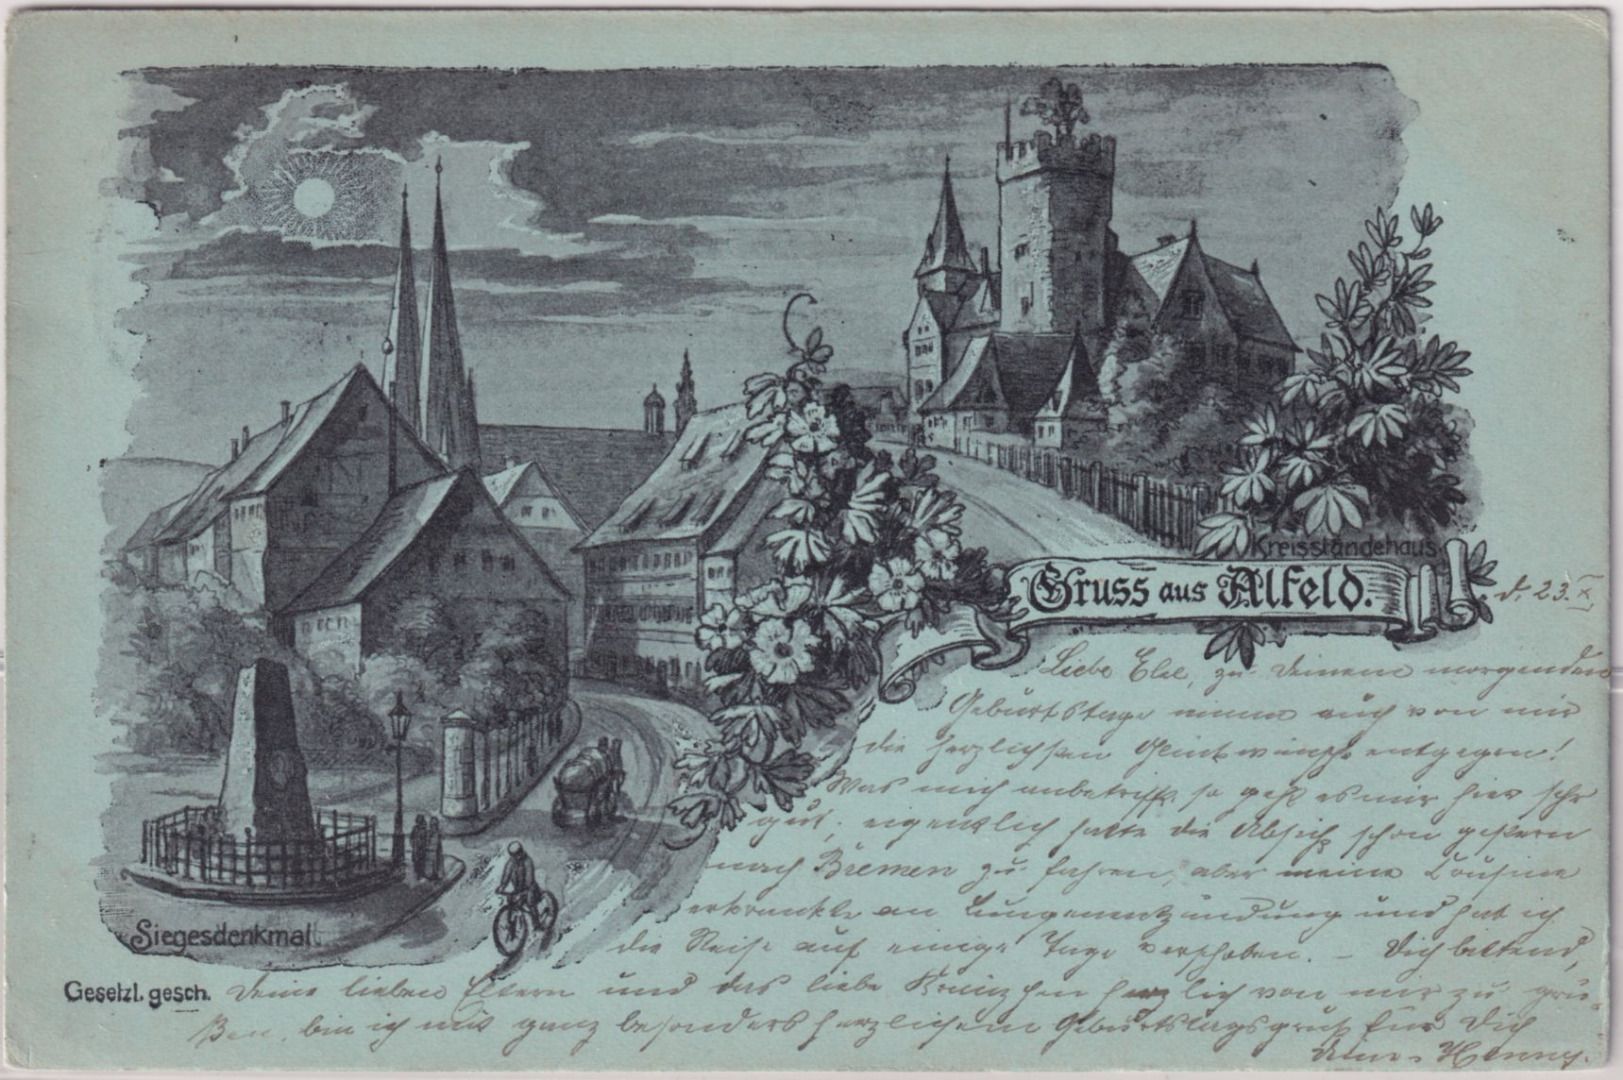 Kreisständehaus
Gruss aus Alfeld.
d. 23. X.
Liebe Else, zu Deinem morgenden
Geburtstage nimm auch von mir
die herzlichsten Glückwünsche entgegen!
Was mich anbetrifft, so geht es mir hier sehr
gut; eigentlich hatte die Absicht, schon gestern
nach Bremen zu fahren, aber meine Cousine
erkrankte an Lungenentzündung und hab ich
die Reise auf einige Tage verschoben. – Dich bittend,
Deine lieben Eltern und das liebe herzlich von mir zu grü-
ßen, bin ich mit ganz besonders herzlichem Geburtstagsgruß für Dich
Deine Henny.
Siegesdenkmal
Gesetzl. gesch.